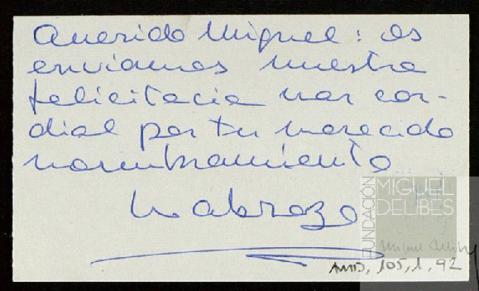 Querido Miguel: os
enviamos nuestra
felicitacia mas cor-
dial por tu merecido
nombramiento
Un abrazo
FUNDACIÓN
MIGUEL
DELIBES
AMD, 105, 1, 92